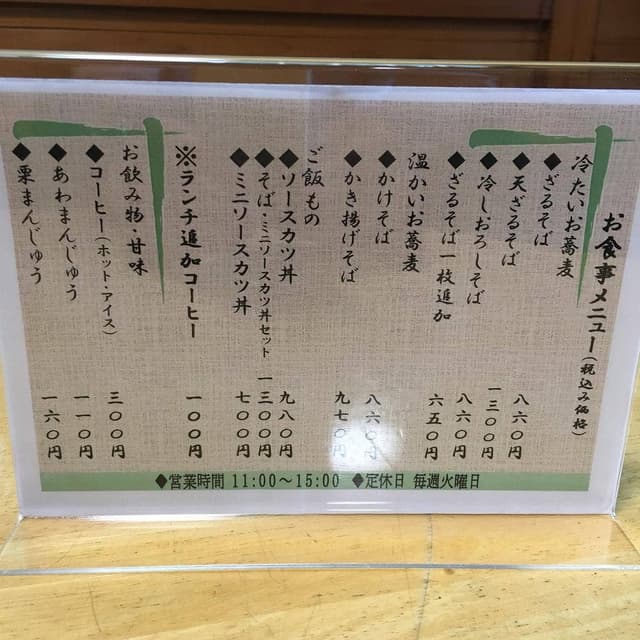 お食事メニュー(税込み価格)
冷たいお蕎麦
◆ざるそば 八六〇円
◆天ざるそば 一三〇〇円
◆冷しおろしそば 八六〇円
◆ざるそば一枚追加 六五〇円
温かいお蕎麦
◆かけそば 八六〇円
◆かき揚げそば 九七〇円
ご飯もの
◆ソースカツ丼 九八〇円
◆そば・ミニソースカツ丼セット 一三〇〇円
◆ミニソースカツ丼 七〇〇円
※ランチ追加コーヒー 一〇〇円
お飲み物・甘味
◆コーヒー(ホット・アイス) 三〇〇円
◆あわまんじゅう 一一〇円
◆栗まんじゅう 一六〇円
◆営業時間 11:00～15:00 ◆定休日 毎週火曜日